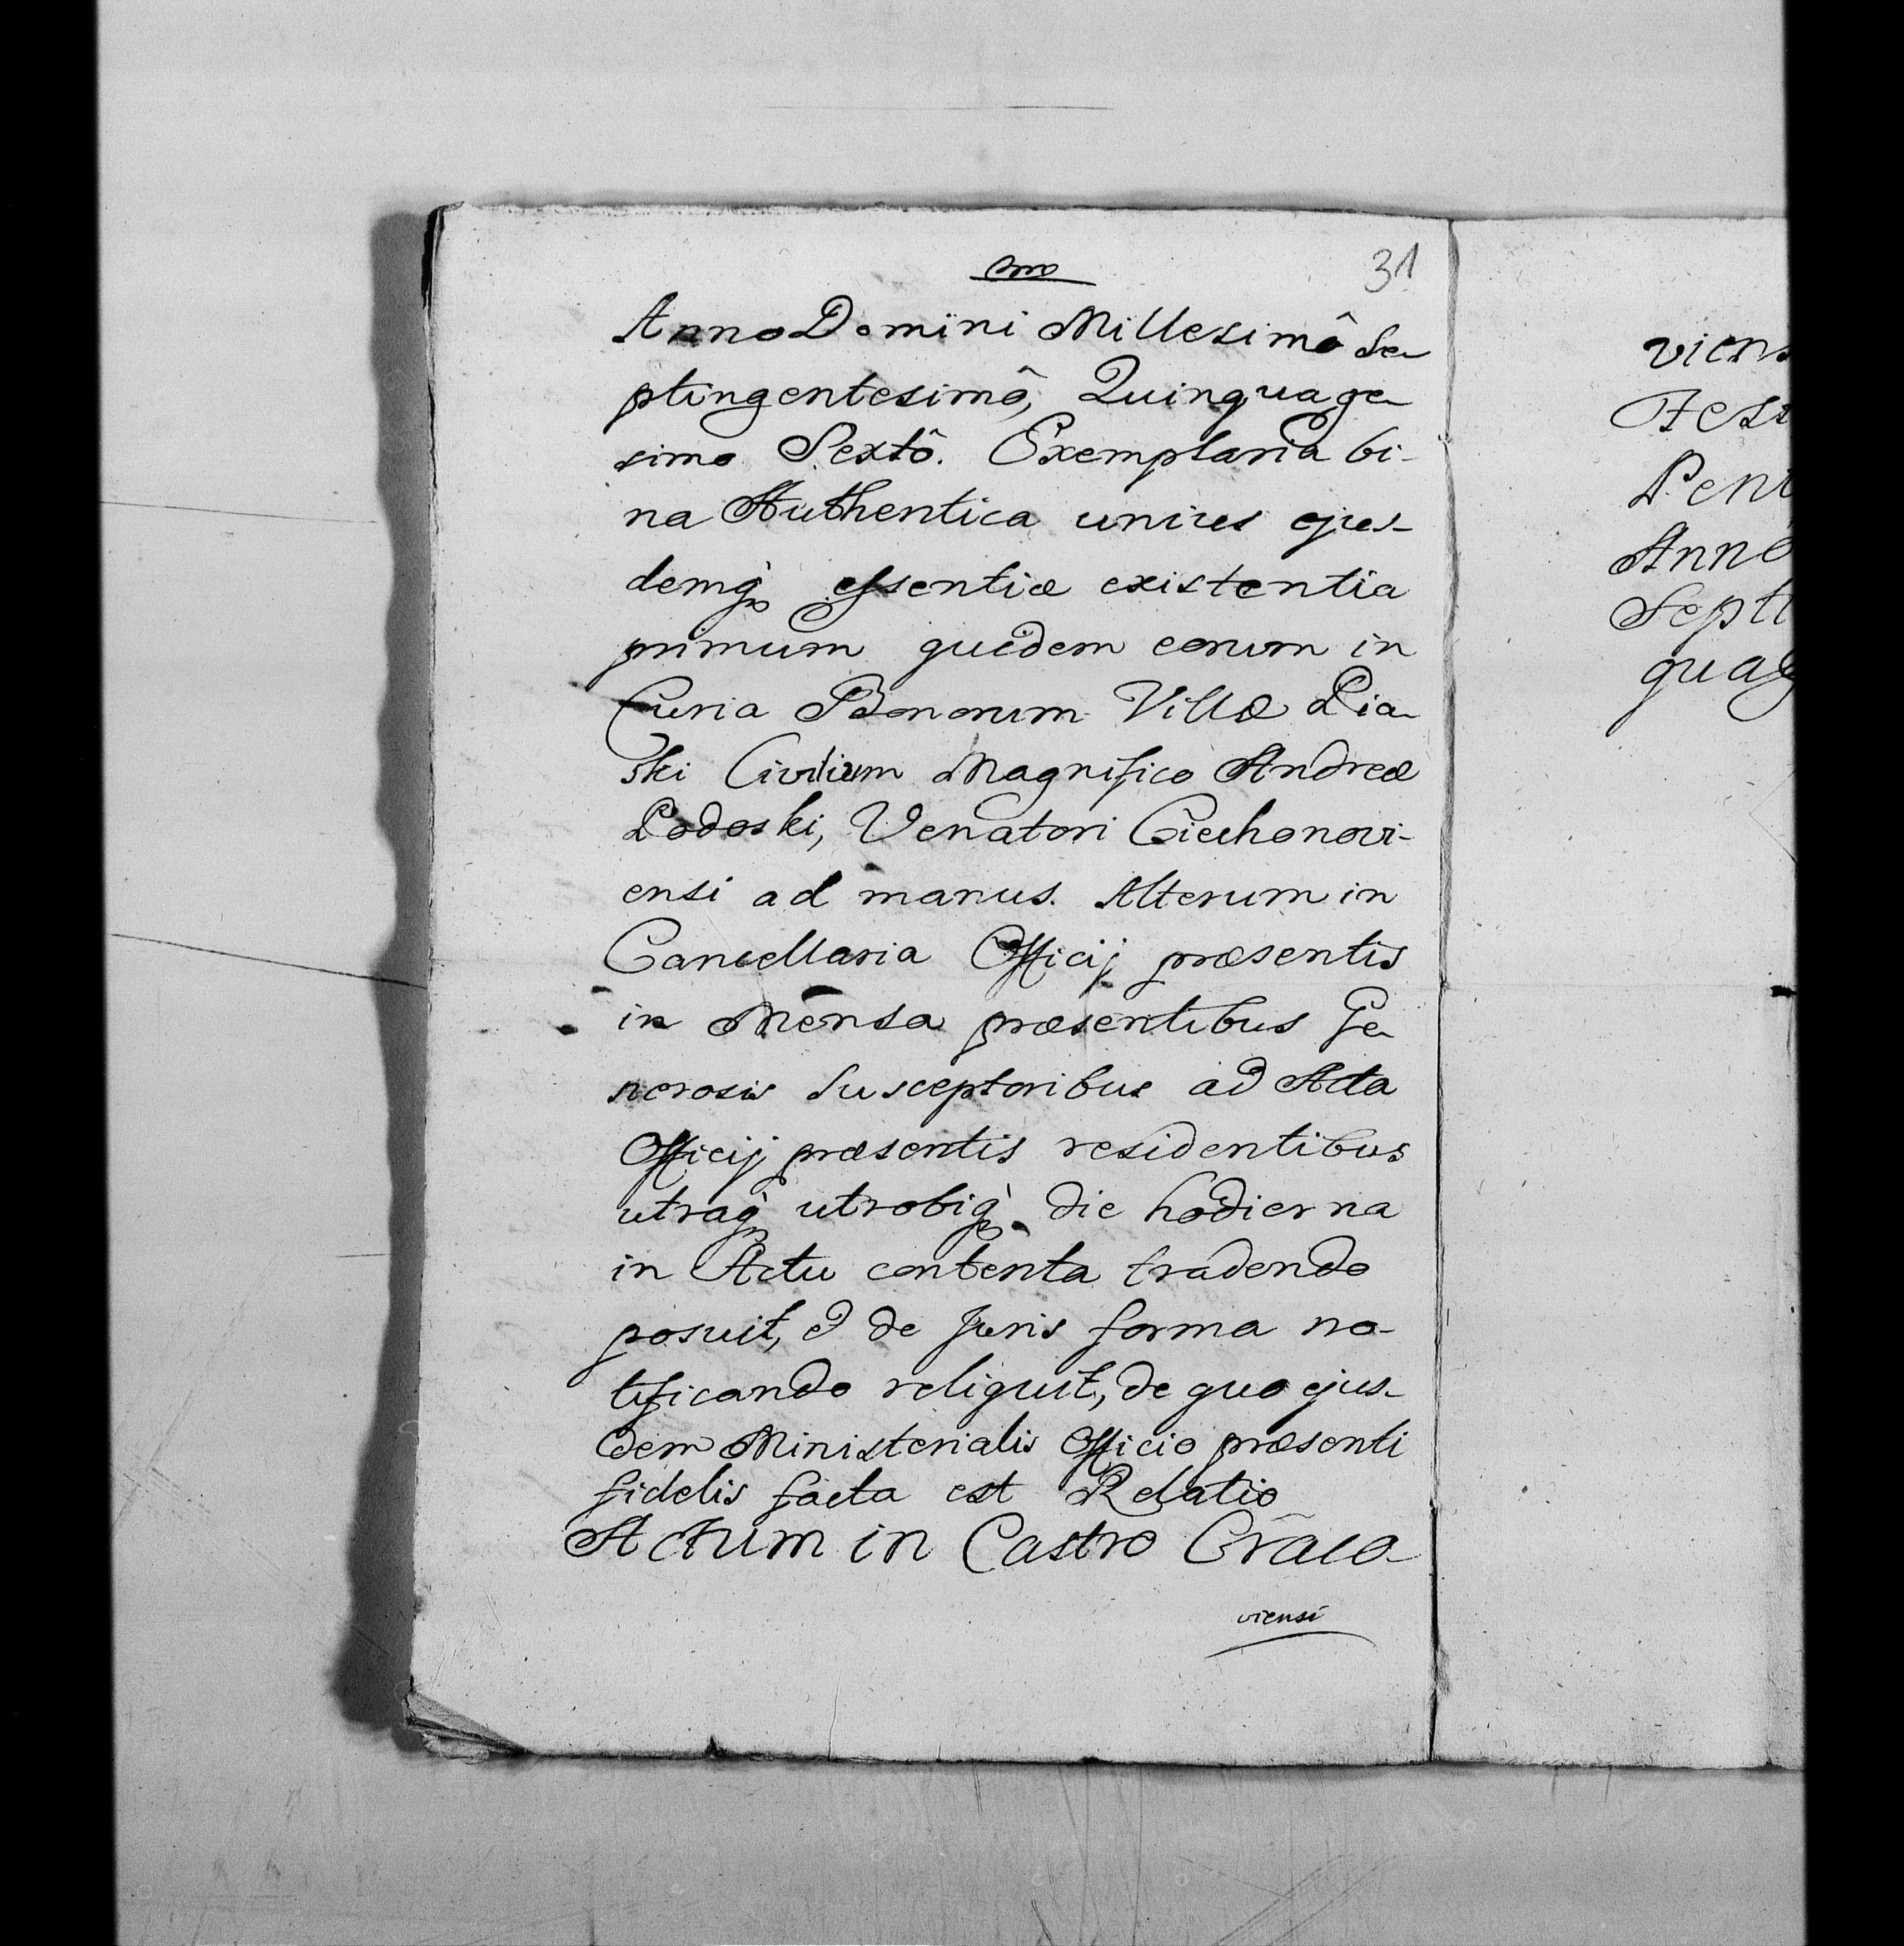 31
Anno Domini Millesimô Se
ptingentesimô, Quinquage
simo Sextô. Exemplaria bi-
na Authentica unius ejus-
demq̀ essentiæ existentia
primum quidem eorum in
Curia Bonorum Villæ Pia
ski Civilium Magnifico Andreæ
Podoski, Venatori Ciechanovi-
ensi ad manus. Alterum in
Cancellaria Officij præsentis
in Mensa præsentibus Ge
nerosis Susceptoribus ad Acta
Officij præsentis residentibus
utraq̀ utrobiq̀ die hodierna
in Actu contenta tradendo
posuit, & de Juris forma no-
tificando reliquit, de quo ejus-
dem Ministerialis Officio præsenti
fidelis facta est Relatio
Actum in Castro Craco
viensi
viens
Fest
Pent
Anno
Septi
quag